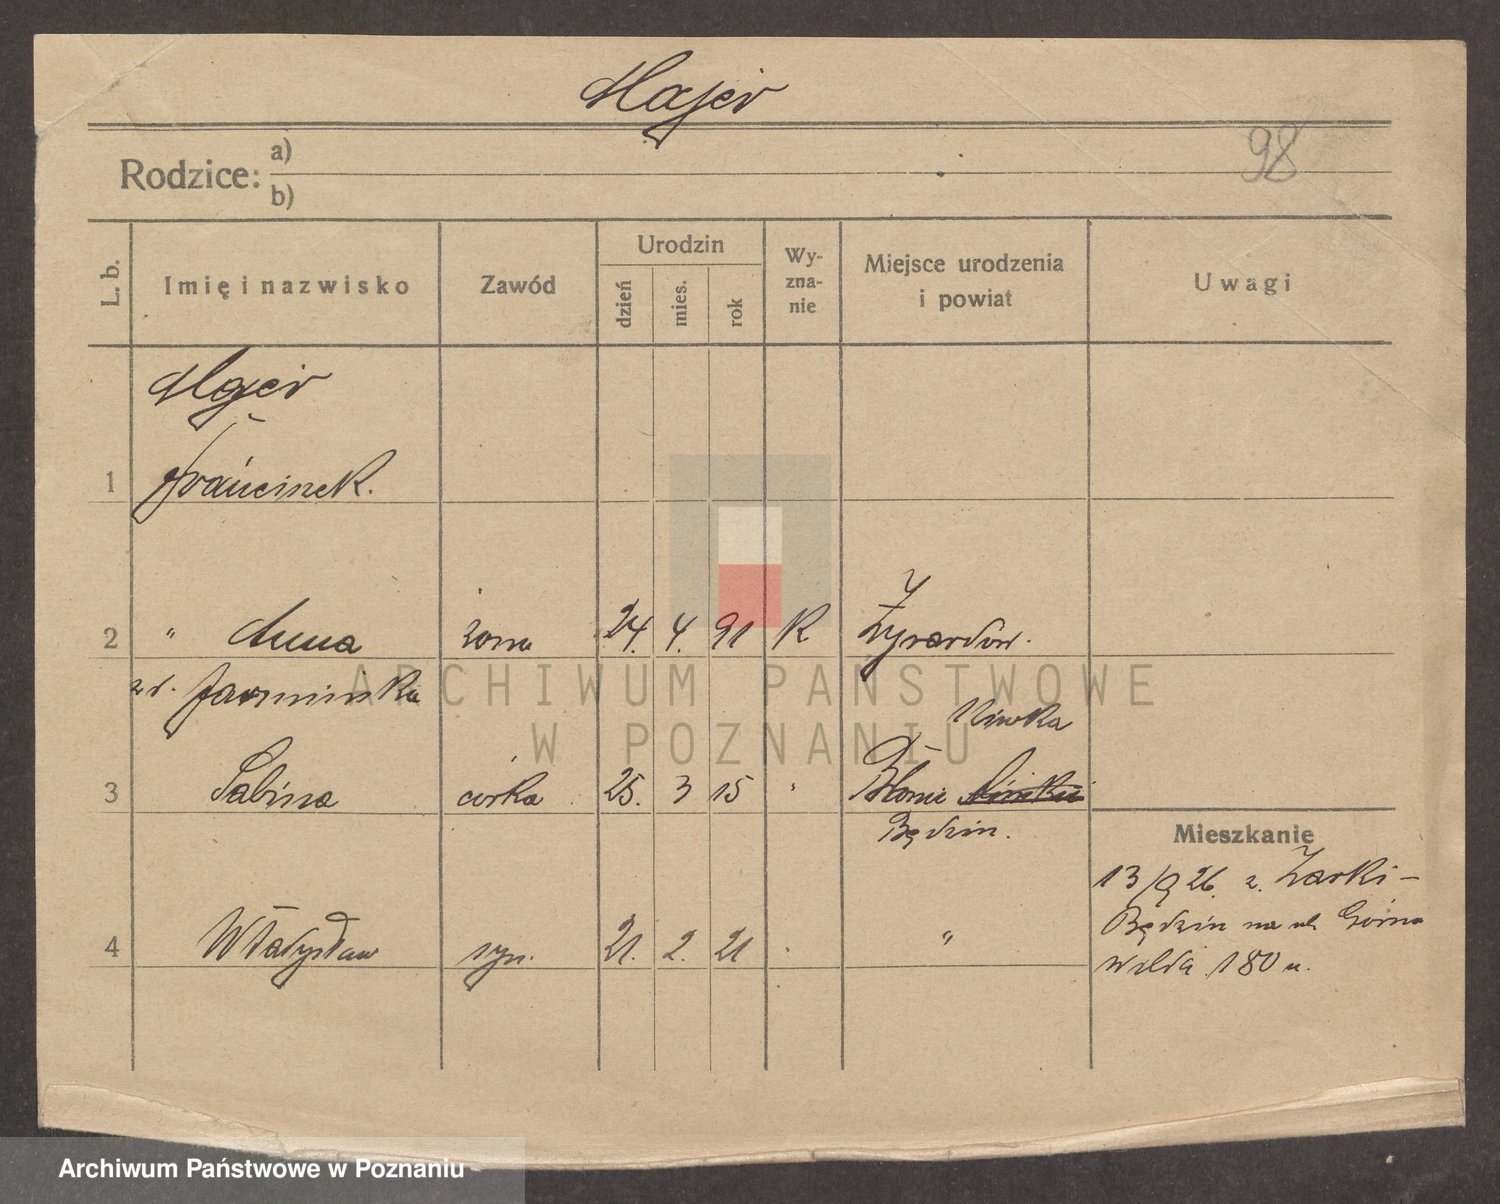 Majer
98
Rodzice: a)
b)
L. b. Imię i nazwisko Zawód Urodzin dzień mies. rok Wy-zna-nie Miejsce urodzenia i powiat Uwagi
Majer
1 Franciszek.
2 " Anna żona 24. 4. 91 K Żyrardów.
zd. Jasmińska
Niwka
3 Sabina córka 25. 3 15 " Błonie
Będzin.
Mieszkanie
13/9 26. z. Żarki –
Będzin na ul. Górna
4 Władysław syn. 21. 2. 21 " "
Wilda 180 u.
ARCHIWUM PAŃSTWOWE
W POZNANIU
Archiwum Państwowe w Poznaniu